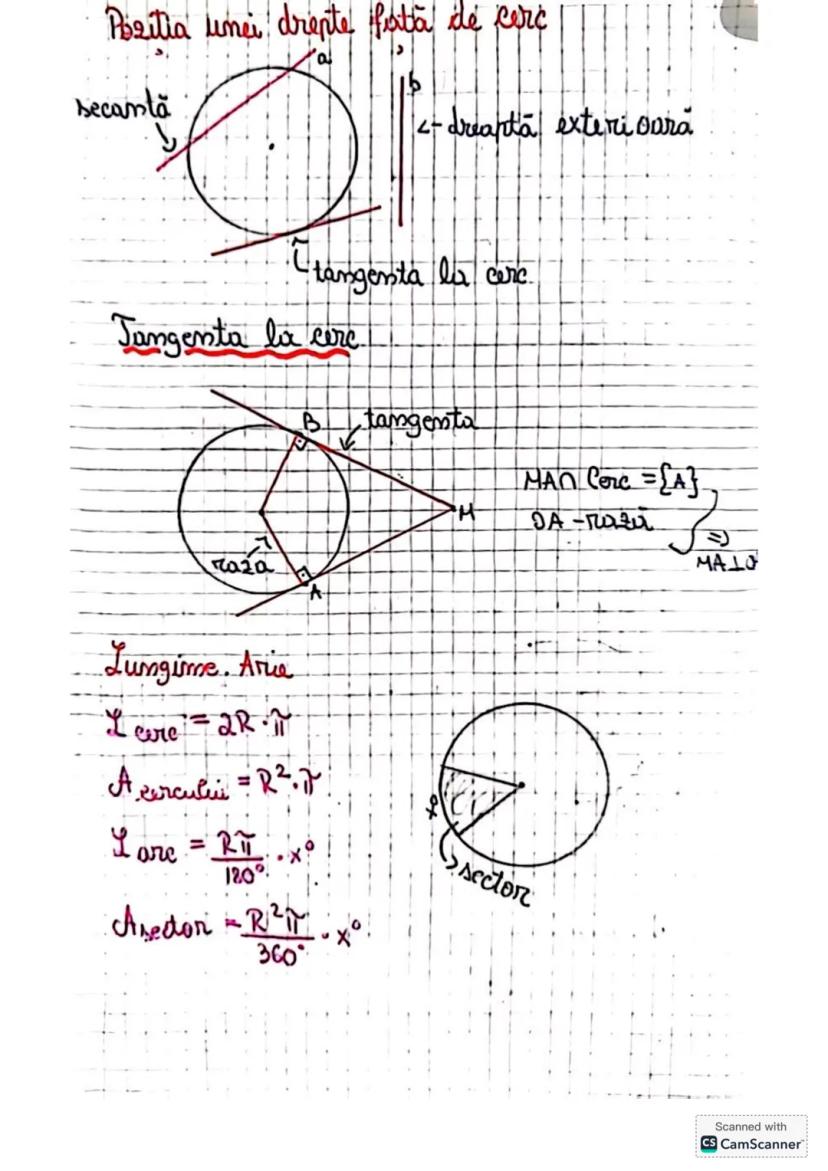 Poziția unei drepte față de cerc
a
b
secantă
<- dreaptă exterioară
tangenta la cerc
Tangenta la cerc
B
tangenta
M
MA∩ Cerc = {A}
OA - rază
=>
MA⊥O
raza
A
Lungime. Arie
L cerc = 2R·π
A cercului = R²·π
L arc = Rπ/180° · x°
A sector = R²π/360° · x°
sector
Scanned with
CS CamScanner